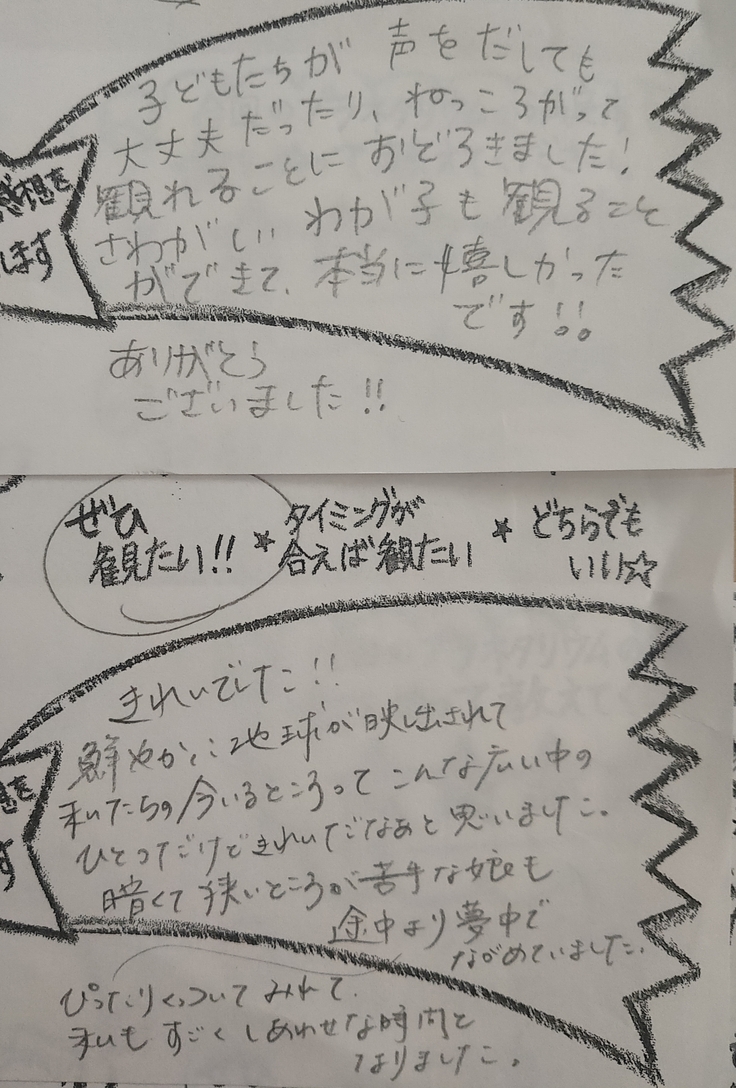 子どもたちが 声をだしても
大丈夫だったり、ねっころがって
観れることにおどろきました!
さわがしい わが子も観ること
ができて、本当に嬉しかった
です!!
ありがとう
ございました!!
感想を
します
ぜひ
観たい!!
★ タイミングが
合えば観たい
★ どちらでも
いい☆
きれいでした!!
鮮やかに地球が映し出されて
私たちの今いるところってこんな広い中の
ひとつだけどきれいだなあと思いました。
暗くて狭いところが苦手な娘も
途中より夢中で
ながめていました。
を
す
ぴったりくっついてみれて、
私もすごくしあわせな時間と
なりました。